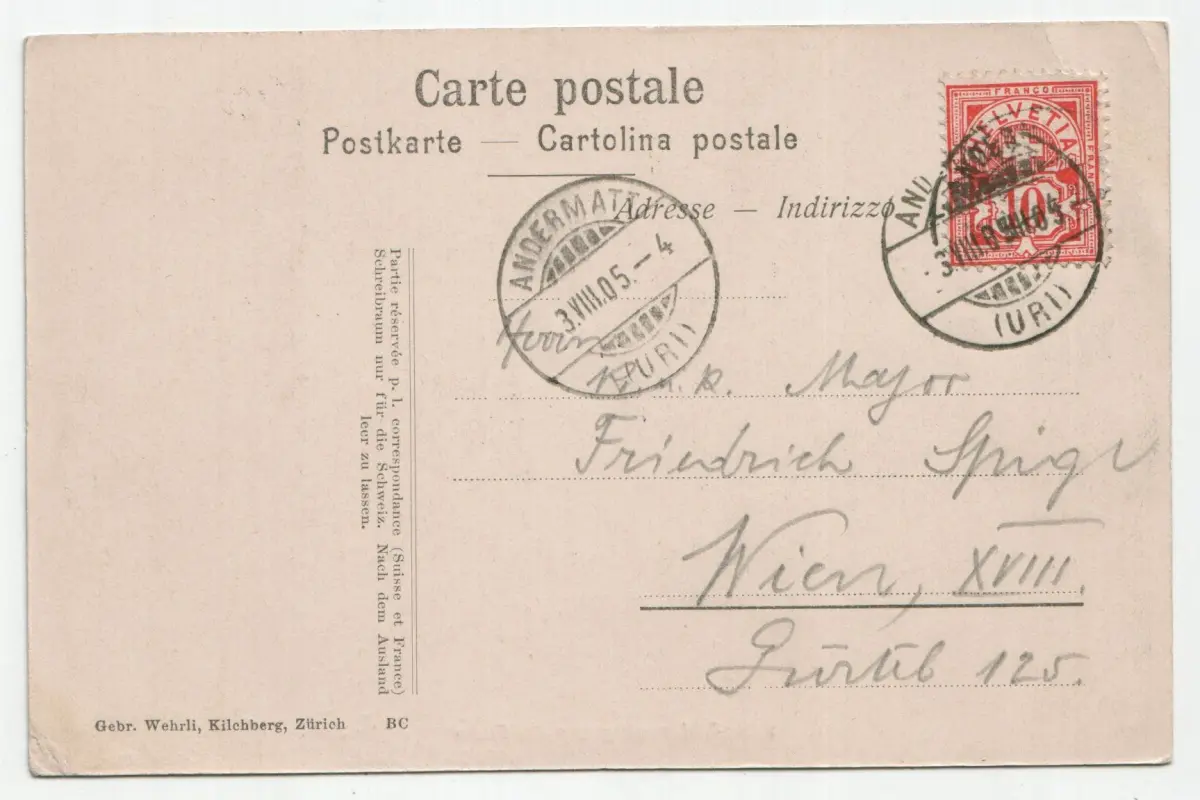 Carte postale
Postkarte — Cartolina postale
Adresse — Indirizzo
FRANCO
HELVETIA
FRANCO
10
ANDERMATT
3.VIII.05.–4
(URI)
AND
3.VIII.05
3.VIII.05.–
(URI)
Herrn
k. u. k. Major
Friedrich Spigl
Wien, XVIII.
Gürtel 125.
Partie réservée p. l. correspondance (Suisse et France)
Schreibraum nur für die Schweiz. Nach dem Ausland
leer zu lassen.
Gebr. Wehrli, Kilchberg, Zürich BC